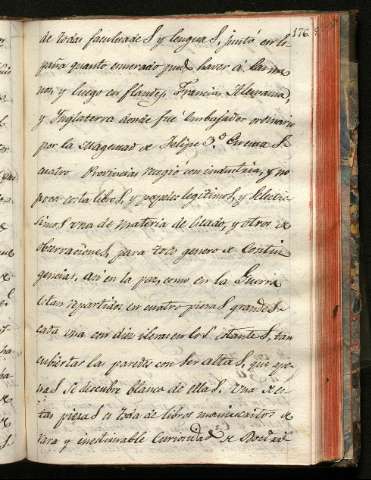 176
de todas facultades y lenguas, juntó en Es
paña quanto enmerado pudo haver à las ma
nos, y luego en flandes, Francia, Alemania,
y Inglaterra donde fue embajador ordinario
por la Magestad de Felipe 3.º En essas
cuatro Provincias recogió con industria, y no
poca costa libros, y papeles legitimos, y selectis
simos una de materia de Estado, y otros de
observaciones, para todo genero de Contin
gencias, asi en la paz, como en la Guerra
estan repartidos en cuatro piezas grandes
cada una con diez ileras en los estantes, tan
cubiertas las paredes con ser altas, que ape
nas se descubre blanco de ellas. Una de es
tas piezas es toda de libros manuscritos de
rara y inestimable Curiosidad de